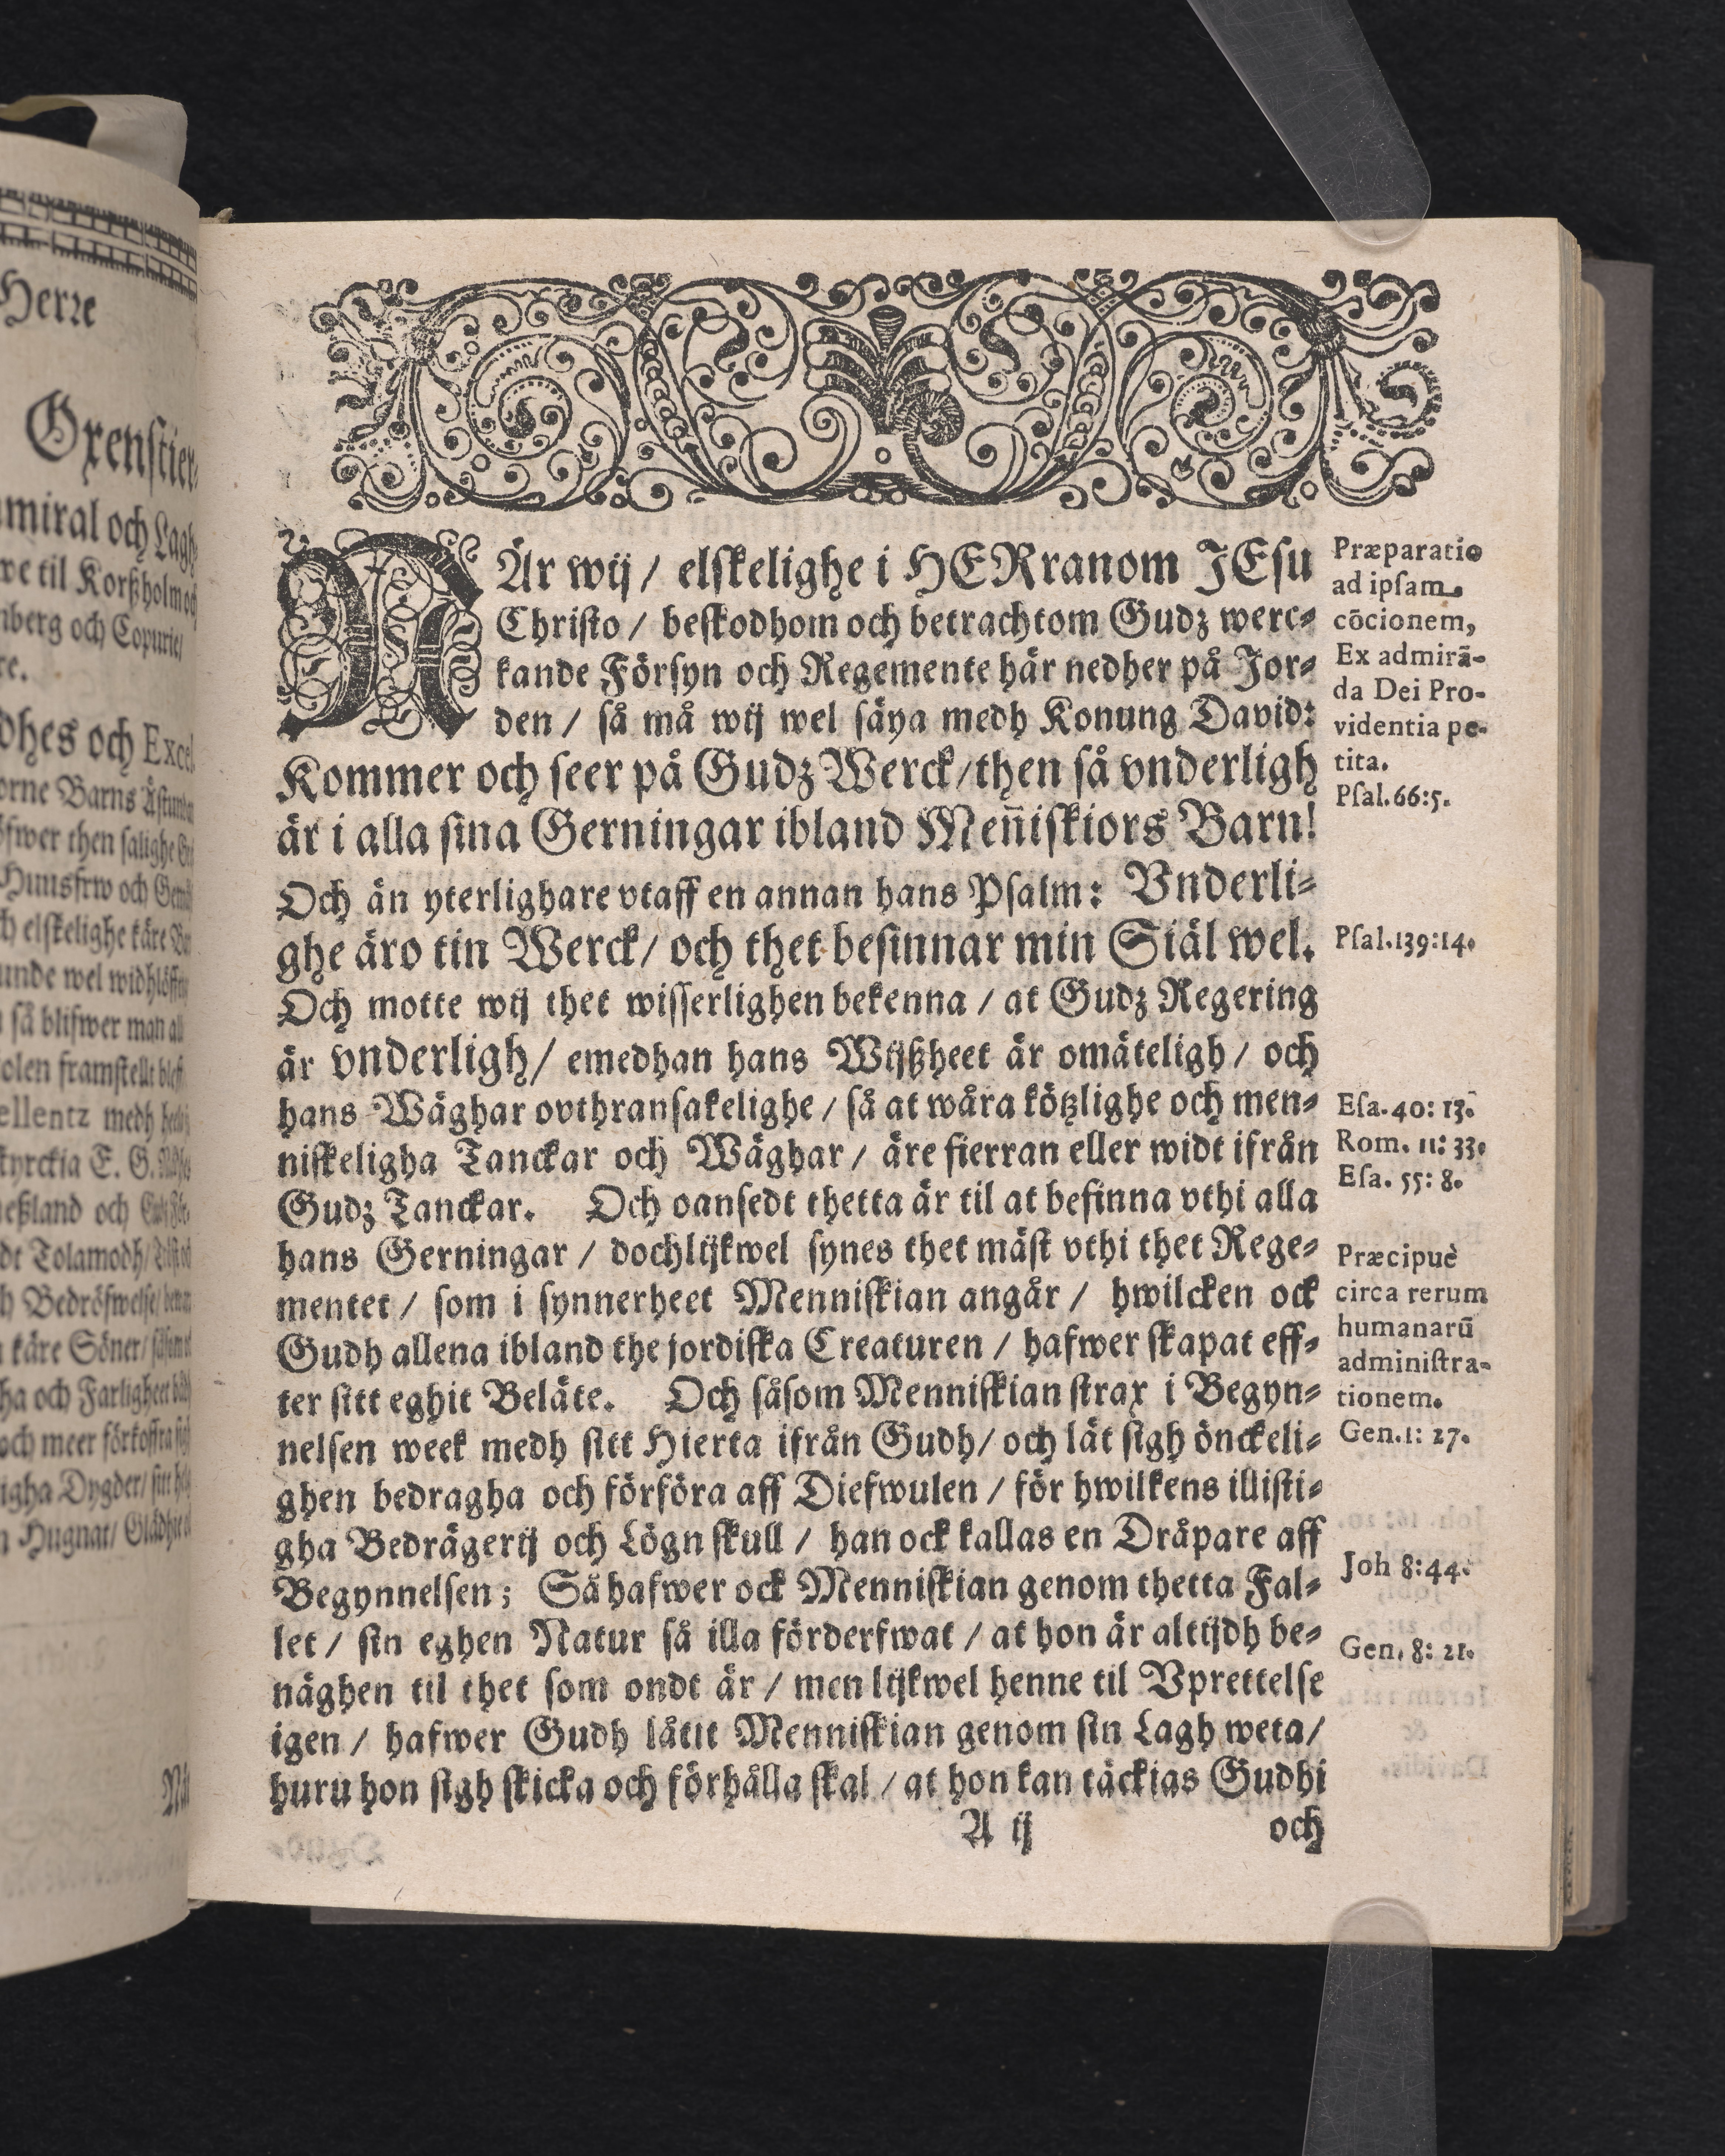 Herre
Oxenstier-
miral och Lagh-
we til Korßholm och
riberg och Copurie/
re.
dhes och Excel
orne Barns
fwer then salighe
Huusfrw och
elskelighe käre
unde wel widhlöffti
så blifwer man all
olen framstelt
ellentz medh
kyrckia E. G.
eßland och
dt Tolamodh/
h Bedröfwelse/
käre Söner/
ha och Farligheet
och meer förkoffra
igha Dygder/ sitt
Hugnat/ Glädhie
NÄr wij / elskelighe i HERranom JEsu
Christo / beskodhom och betrachtom Gudz werc-
kande Försyn och Regemente här nedher på Jor-
den / så må wij wel säya medh Konung David:
Kommer och seer på Gudz Werck/then så vnderligh
är i alla sina Gerningar ibland Men̄iskiors Barn!
Och än yterlighare vtaff en annan hans Psalm: Vnderli-
ghe äro tin Werck/ och thet besinnar min Siäl wel.
Och motte wij thet wisserlighen bekenna / at Gudz Regering
är vnderligh/ emedhan hans Wijßheet är omäteligh / och
hans Wäghar ovthransakelighe / så at wåra kötzlighe och men-
niskeligha Tanckar och Wäghar / äre fierran eller widt ifrån
Gudz Tanckar. Och oansedt thetta är til at befinna vthi alla
hans Gerningar / dochlijkwel synes thet mäst vthi thet Rege-
mentet / som i synnerheet Menniskian angår / hwilcken ock
Gudh allena ibland the jordiska Creaturen / hafwer skapat eff-
ter sitt eghit Beläte. Och såsom Menniskian strax i Begyn-
nelsen week medh sitt Hierta ifrån Gudh/ och lät sigh önckeli-
ghen bedragha och förföra aff Diefwulen / för hwilkens illisti-
gha Bedrägerij och Lögn skull / han ock kallas en Dråpare aff
Begynnelsen; Så hafwer ock Menniskian genom thetta Fal-
let / sin eghen Natur så illa förderfwat / at hon är altijdh be-
näghen til thet som ondt är / men lijkwel henne til Vprettelse
igen / hafwer Gudh låtit Menniskian genom sin Lagh weta/
huru hon sigh skicka och förhålla skal / at hon kan täckias Gudhi
A ij och
Præparatio
ad ipsam
cōcionem,
Ex admirā-
da Dei Pro-
videntia pe-
tita.
Psal. 66:5.
Psal. 139:14.
Esa. 40: 13.
Rom. 11: 33.
Esa. 55: 8.
Præcipuè
circa rerum
humanarū
administra-
tionem.
Gen. 1: 27.
Joh 8:44.
Gen. 8: 21.